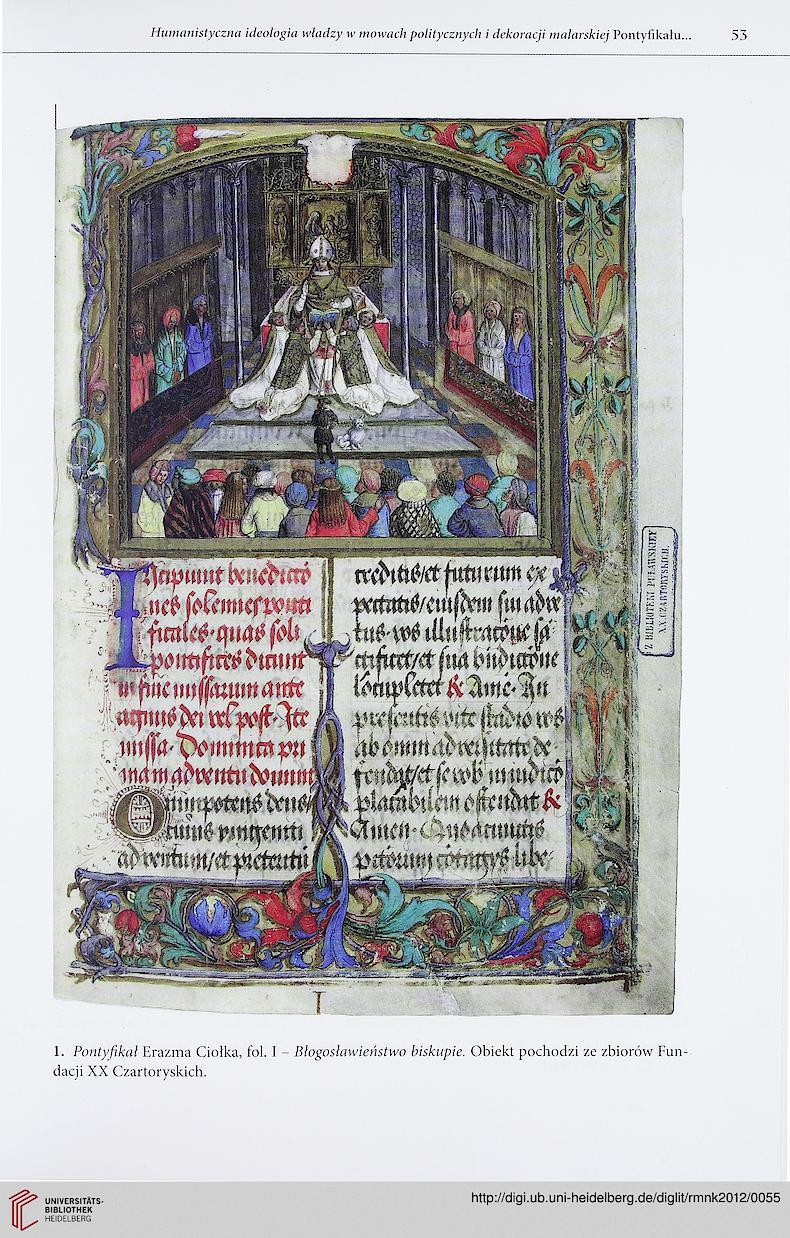 Humanistyczna ideologia władzy w mowach politycznych i dekoracji malarskiej Pontyfikału...
53
Incipiunt benedictō
nes solennes ponti
ficales · quas soli
pontifices dicunt
in fine missarum ante
agnus dei vel post · Ite
missa · Dominica pri
ma in adventu domini
Omnipotens deus /
cuius unigeniti
adventum / et preteritū
creditis / et futurum ex
pectatis / eiusdem sui adve
tus · vos illustratōne sā
ctificet / et sua bn̄dictōne
locupletet ℟ Amē · In
presentis vite stadio vos
ab omni adversitate de
fendat / et se vob in iudicō
placabilem ostendat ℟
Amen · Quo a cunctis
pctōrum cōtagijs libe
Z BIBLIOTEKI PUŁAWSKIEY
XX.CZARTORYSKICH.
1. Pontyfikał Erazma Ciołka, fol. I – Błogosławieństwo biskupie. Obiekt pochodzi ze zbiorów Fun-
dacji XX Czartoryskich.
UNIVERSITÄTS-
BIBLIOTHEK
HEIDELBERG
http://digi.ub.uni-heidelberg.de/diglit/rmnk2012/0055